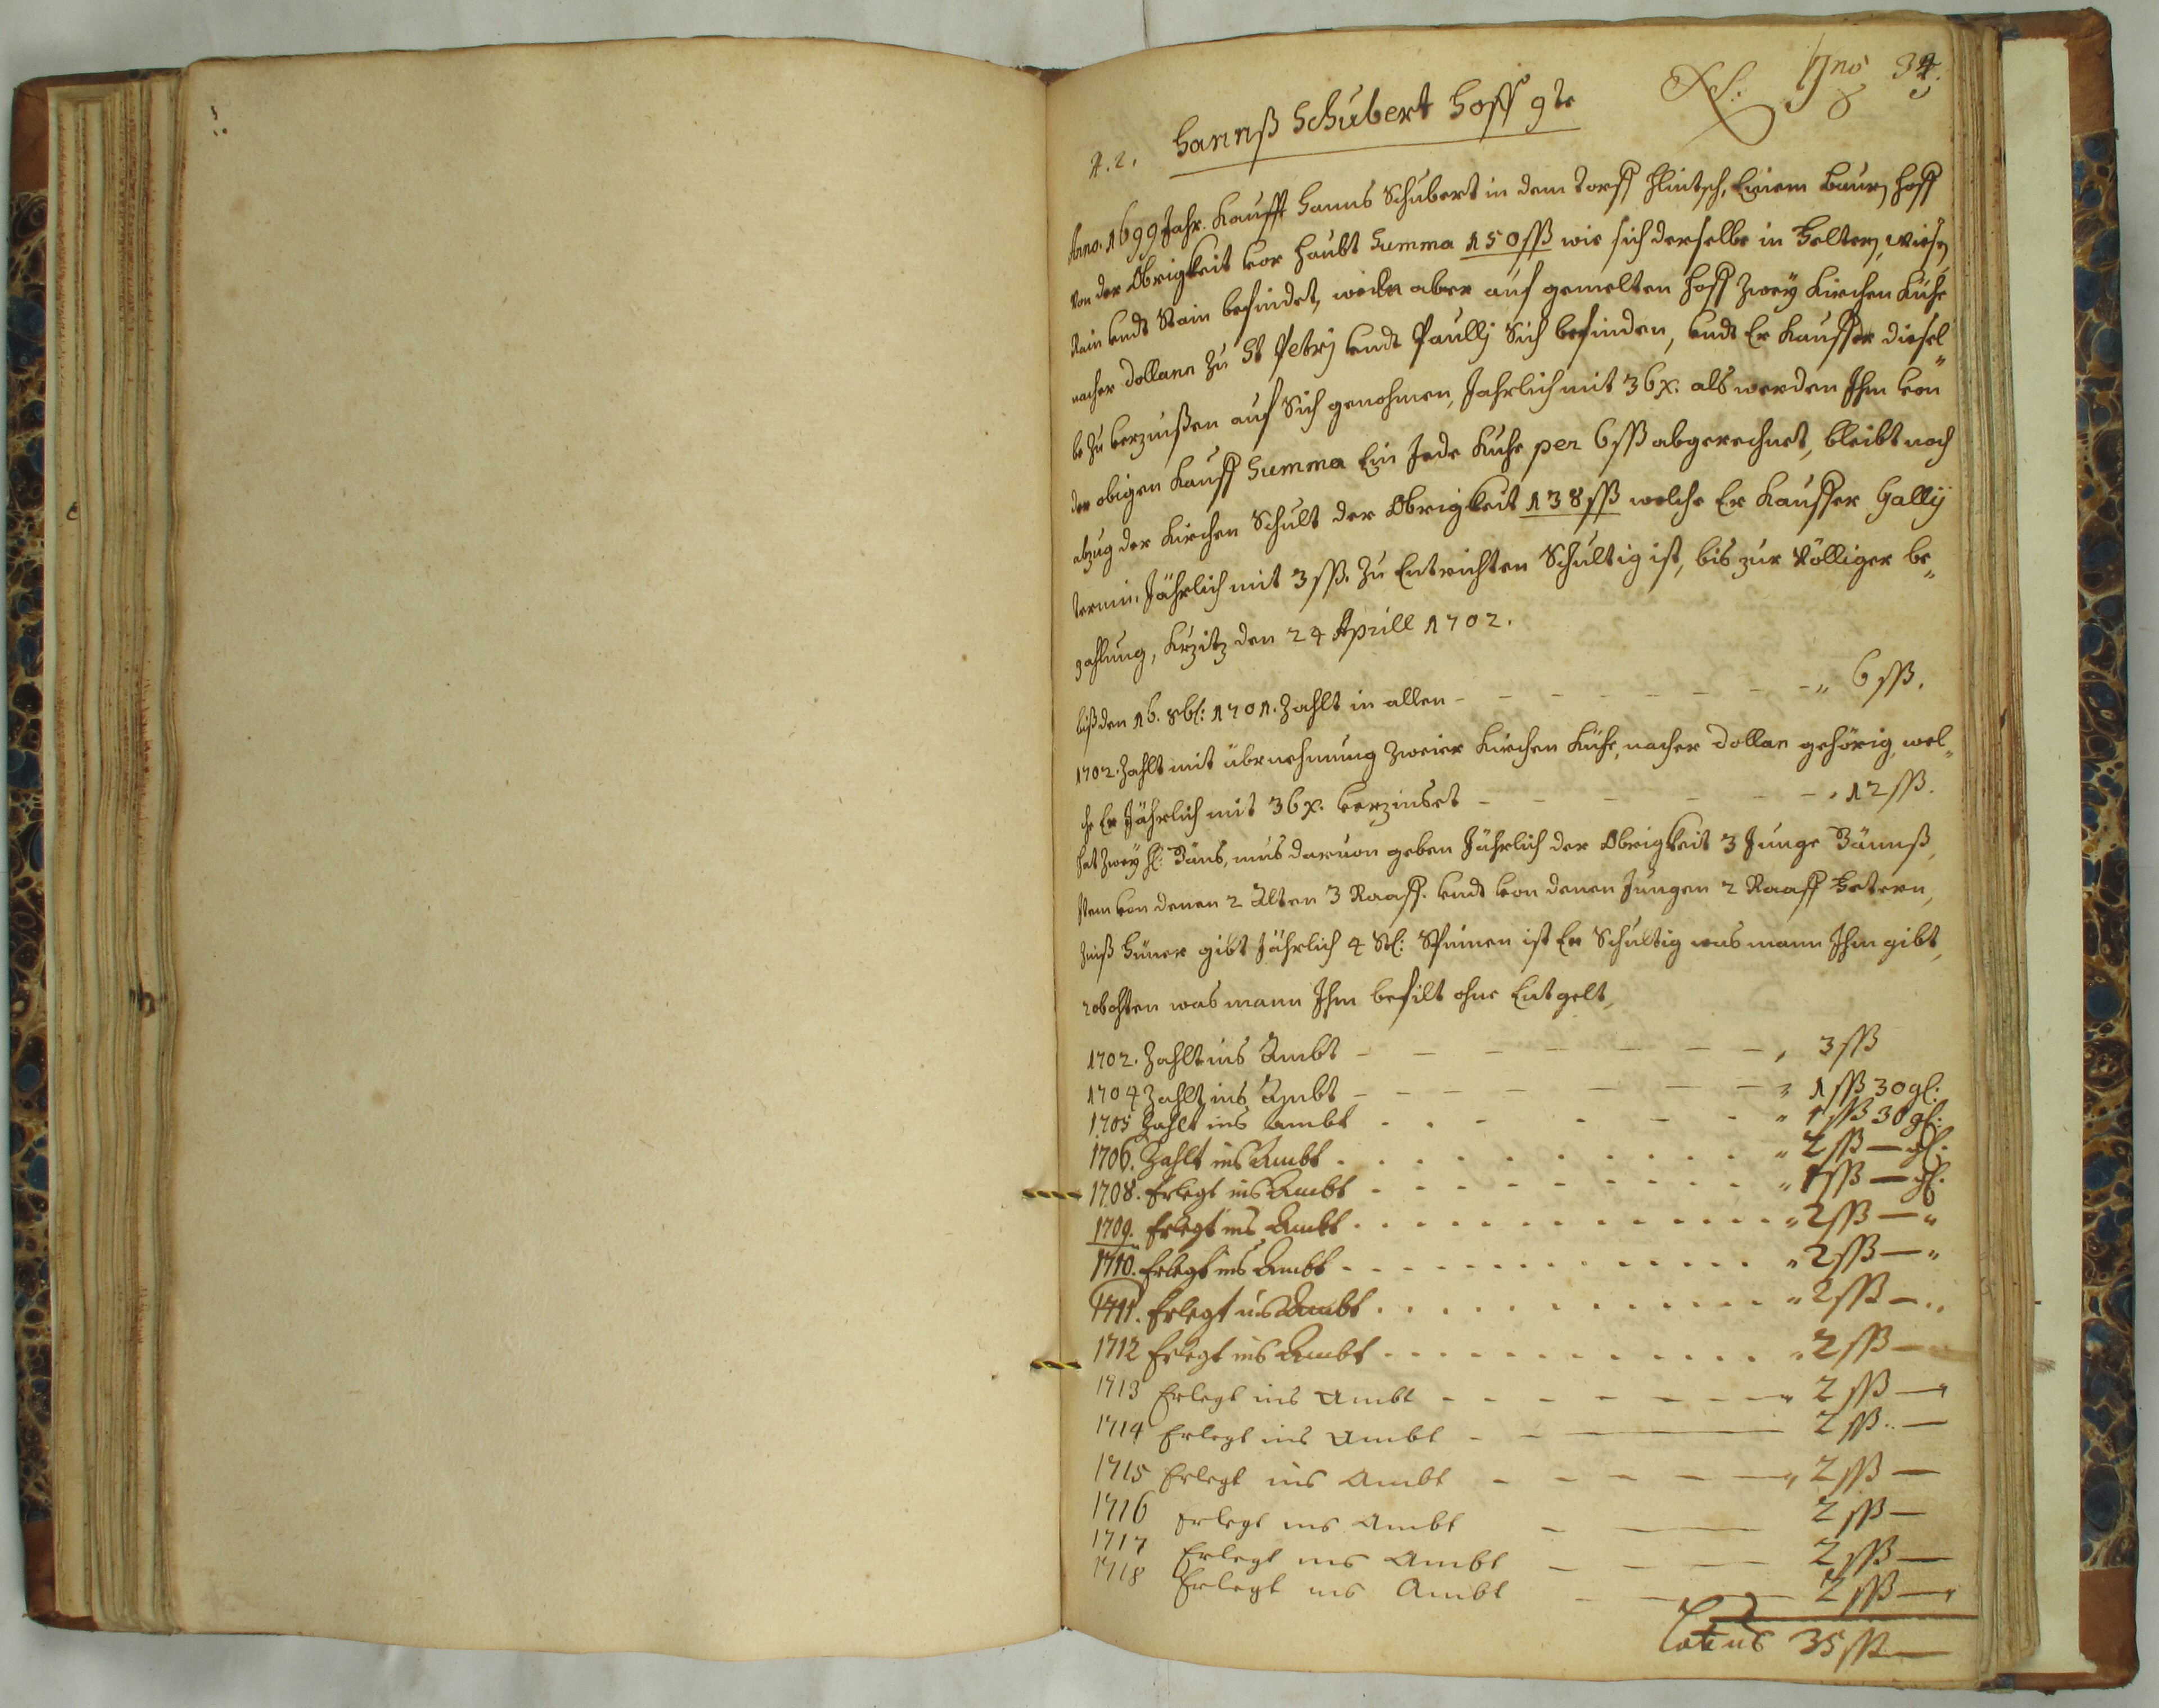 34.
A. 2. Hannß Schubert Hoff
Anno. 1699 Jahr. Kaufft Hanns Schubert in dem Dorff Hlintsch, Einem Baurn Hoff
Von der Obrigkeit vor Haubt Summa 150 ßß wie sich derselbe in Feltern, Wiesen
Rein undt Stain befindet, weiln aber auf gemelten Hoff Zwey Kirchen Kühe
nacher Dollann Zu St Petrj undt Paullj Sich befinden, undt Er Kauffer diesel„
be Zu verzinßen auf Sich genohmen, Jahrlich mit 36 x. als werden Ihm von
der obigen Kauff Summa Ein Jede Kuhe per 6 ßß abgerechnet, bleibt nach
abzug der Kirchen Schult der Obrigkeit 138 ßß welche Er Kauffer Gallij
termin Jährlich mit 3 ßß. Zu Entrichten Schultig ist, bis zur Völliger be„
zahlung, Krzitz den 24 Aprill 1702.
biß den 16. 8b: 1701. Zahlt in allen – – – – – – – „ 6 ßß.
1702. Zahlt mit übernehmung Zweier Kirchen Kühe, nacher Dollan gehörig, wel„
che Er Jährlich mit 36 x. verzinset – – – – – – 12 ßß.
hat Zwey Gänß, mus daruon geben Jährlich der Obrigkeit 3 Junge Gännß,
Item von denen 2 Alten 3 Raaff. undt von denen Jungen 2 Raaff Fetern,
Zinß Hüner gibt Jährlich 4 St: Spinnen ist Er Schultig was mann Ihm gibt,
robohten was mann Ihm befilt ohne Entgelt,
1702. Zahlt ins Ambt – – – – – – – , 3 ßß
1704 Zahlt ins Ambt – – – – – – – „ 1 ßß 30 gl:
1705 Zahlt ins ambt . . . . . . „ 1 ßß 30 gl:
1706. Zahlt ins Ambt . . . . . . . . „ 2 ßß — gl.
1708. Erlegt ins Ambt . . . . . . . . „ 1 ßß — gl.
1709. Erlegt ins Ambt . . . . . . . . „ 2 ßß — „
1710. Erlegt ins Ambt . . . . . . . . „ 2 ßß — „
1711. Erlegt ins Ambt . . . . . . . . „ 2 ßß — „
1712 Erlegt ins Ambt . . . . . . . . „ 2 ßß —
1713 Erlegt ins Ambt – – – – – – – „ 2 ßß — „
1714 Erlegt ins Ambt – – — — — 2 ßß „ —
1715 Erlegt ins Ambt – – – – — „ 2 ßß —
1716 Erlegt ins Ambt – — — — 2 ßß —
1717 Erlegt ins Ambt – – — — 2 ßß —
1718 Erlegt ins Ambt – — — 2 ßß — „
Latus 35 ßß —